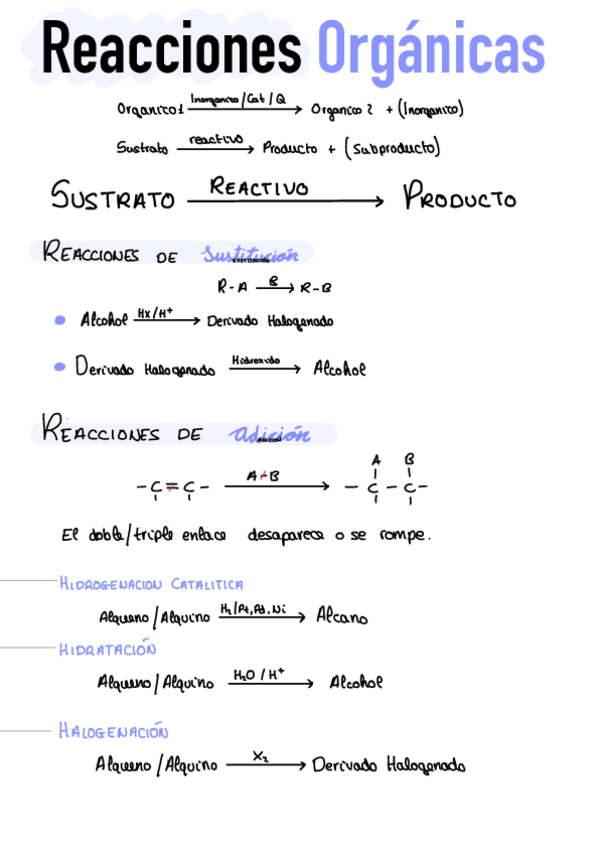 Reacciones Orgánicas
Organico 1 Inorganico/Cat/Q → Organico 2 + (Inorganico)
Sustrato reactivo → Producto + (Subproducto)
SUSTRATO REACTIVO → PRODUCTO
REACCIONES DE Sustitución
R-A B → R-B
• Alcohol HX/H⁺ → Derivado Halogenado
• Derivado Halogenado Hidroxido → Alcohol
REACCIONES DE adición
A B
-C=C- A+B → -C-C-
El doble/triple enlace desaparece o se rompe.
HIDROGENACION CATALITICA
Alqueno/Alquino H₂/Pt,Pd,Ni → Alcano
HIDRATACIÓN
Alqueno/Alquino H₂O/H⁺ → Alcohol
HALOGENACIÓN
Alqueno/Alquino X₂ → Derivado Halogenado